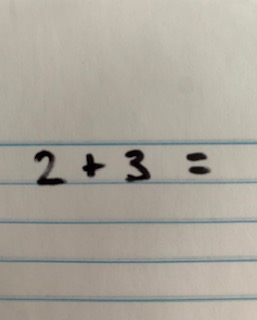 2 + 3 =